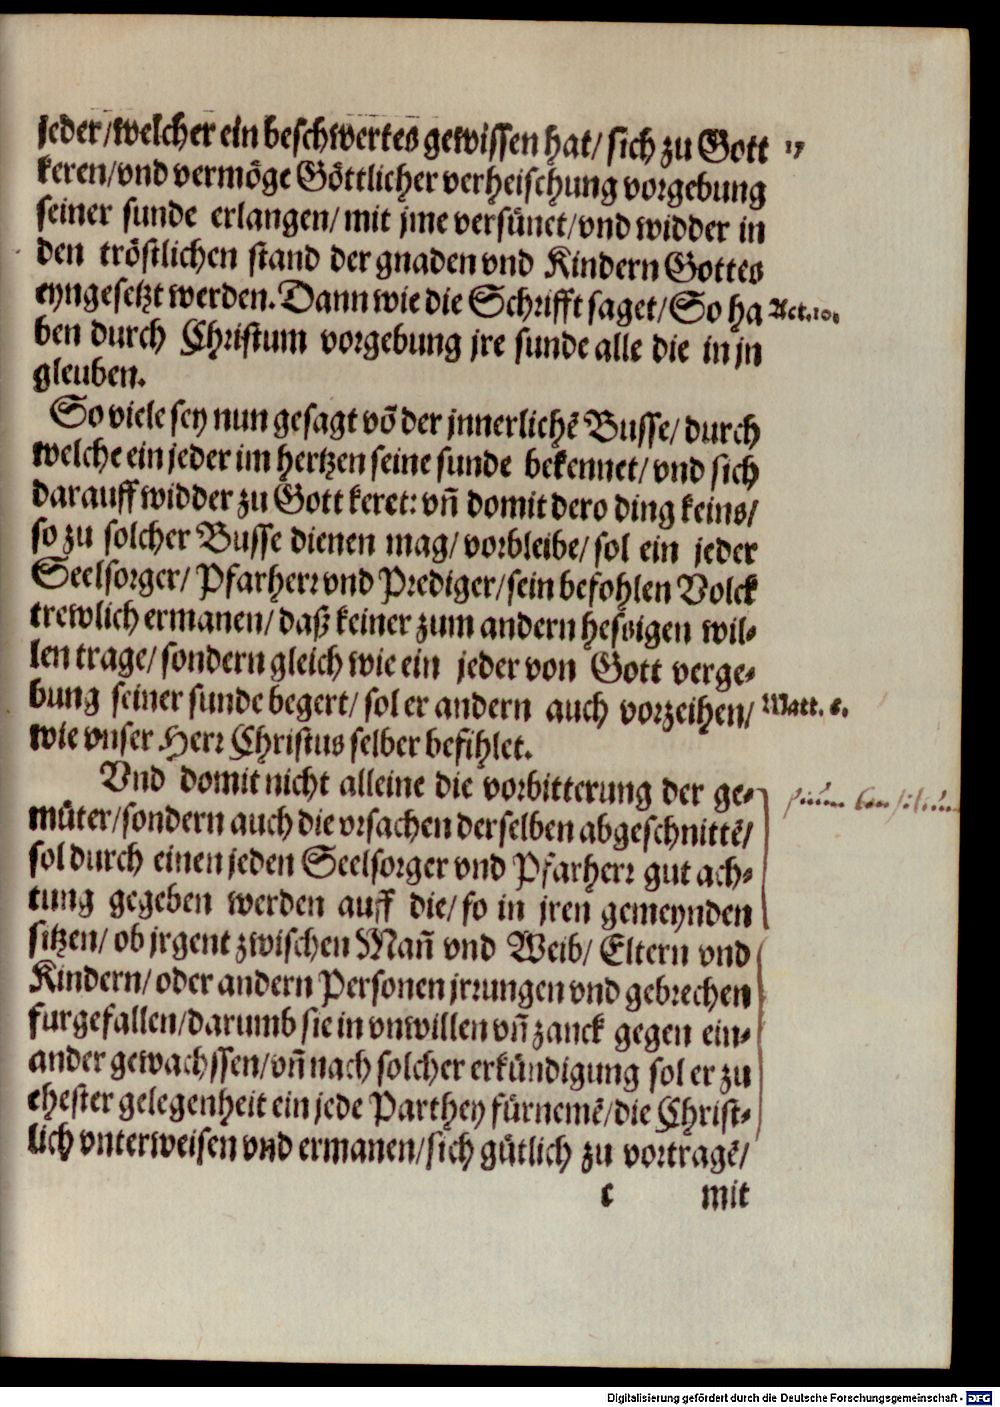 jeder/welcher ein beschwertes gewissen hat/ sich zu Gott 17
keren/vnd vermöge Göttlicher verheischung vorgebung
seiner sunde erlangen/ mit jme versünet/vnd widder in
den tröstlichen stand der gnaden vnd Kindern Gottes
eyngesetzt werden. Dann wie die Schrifft saget/ So ha Act.10.
ben durch Christum vorgebung jre sunde alle die in jn
gleuben.
So viele sey nun gesagt võ der jnnerlichẽ Busse/ durch
welche ein jeder im hertzen seine sunde bekennet/ vnd sich
darauff widder zu Gott keret: vñ domit dero ding keins/
so zu solcher Busse dienen mag/ vorbleibe/ sol ein jeder
Seelsorger/ Pfarherr vnd Prediger/ sein befohlen Volck
trewlich ermanen/ daß keiner zum andern hessigen wil-
len trage/ sondern gleich wie ein jeder von Gott verge-
bung seiner sunde begert/ sol er andern auch vorzeihen/ Matt. 6.
wie vnser Herr Christus selber befihlet.
Vnd domit nicht alleine die vorbitterung der ge-
müter/sondern auch die vrsachen derselben abgeschnittẽ/
sol durch einen jeden Seelsorger vnd Pfarherr gut ach-
tung gegeben werden auff die/ so in jren gemeynden
sitzen/ ob jrgent zwischen Mañ vnd Weib/ Eltern vnd
Kindern/ oder andern Personen jrrungen vnd gebrechen
furgefallen/darumb sie in vnwillen vñ zanck gegen ein-
ander gewachssen/vñ nach solcher erkündigung sol er zu
ehester gelegenheit ein jede Parthey fürnemẽ/die Christ-
lich vnterweisen vnd ermanen/sich gütlich zu vortragẽ/
c mit
pium consilium
Digitalisierung gefördert durch die Deutsche Forschungsgemeinschaft - DFG